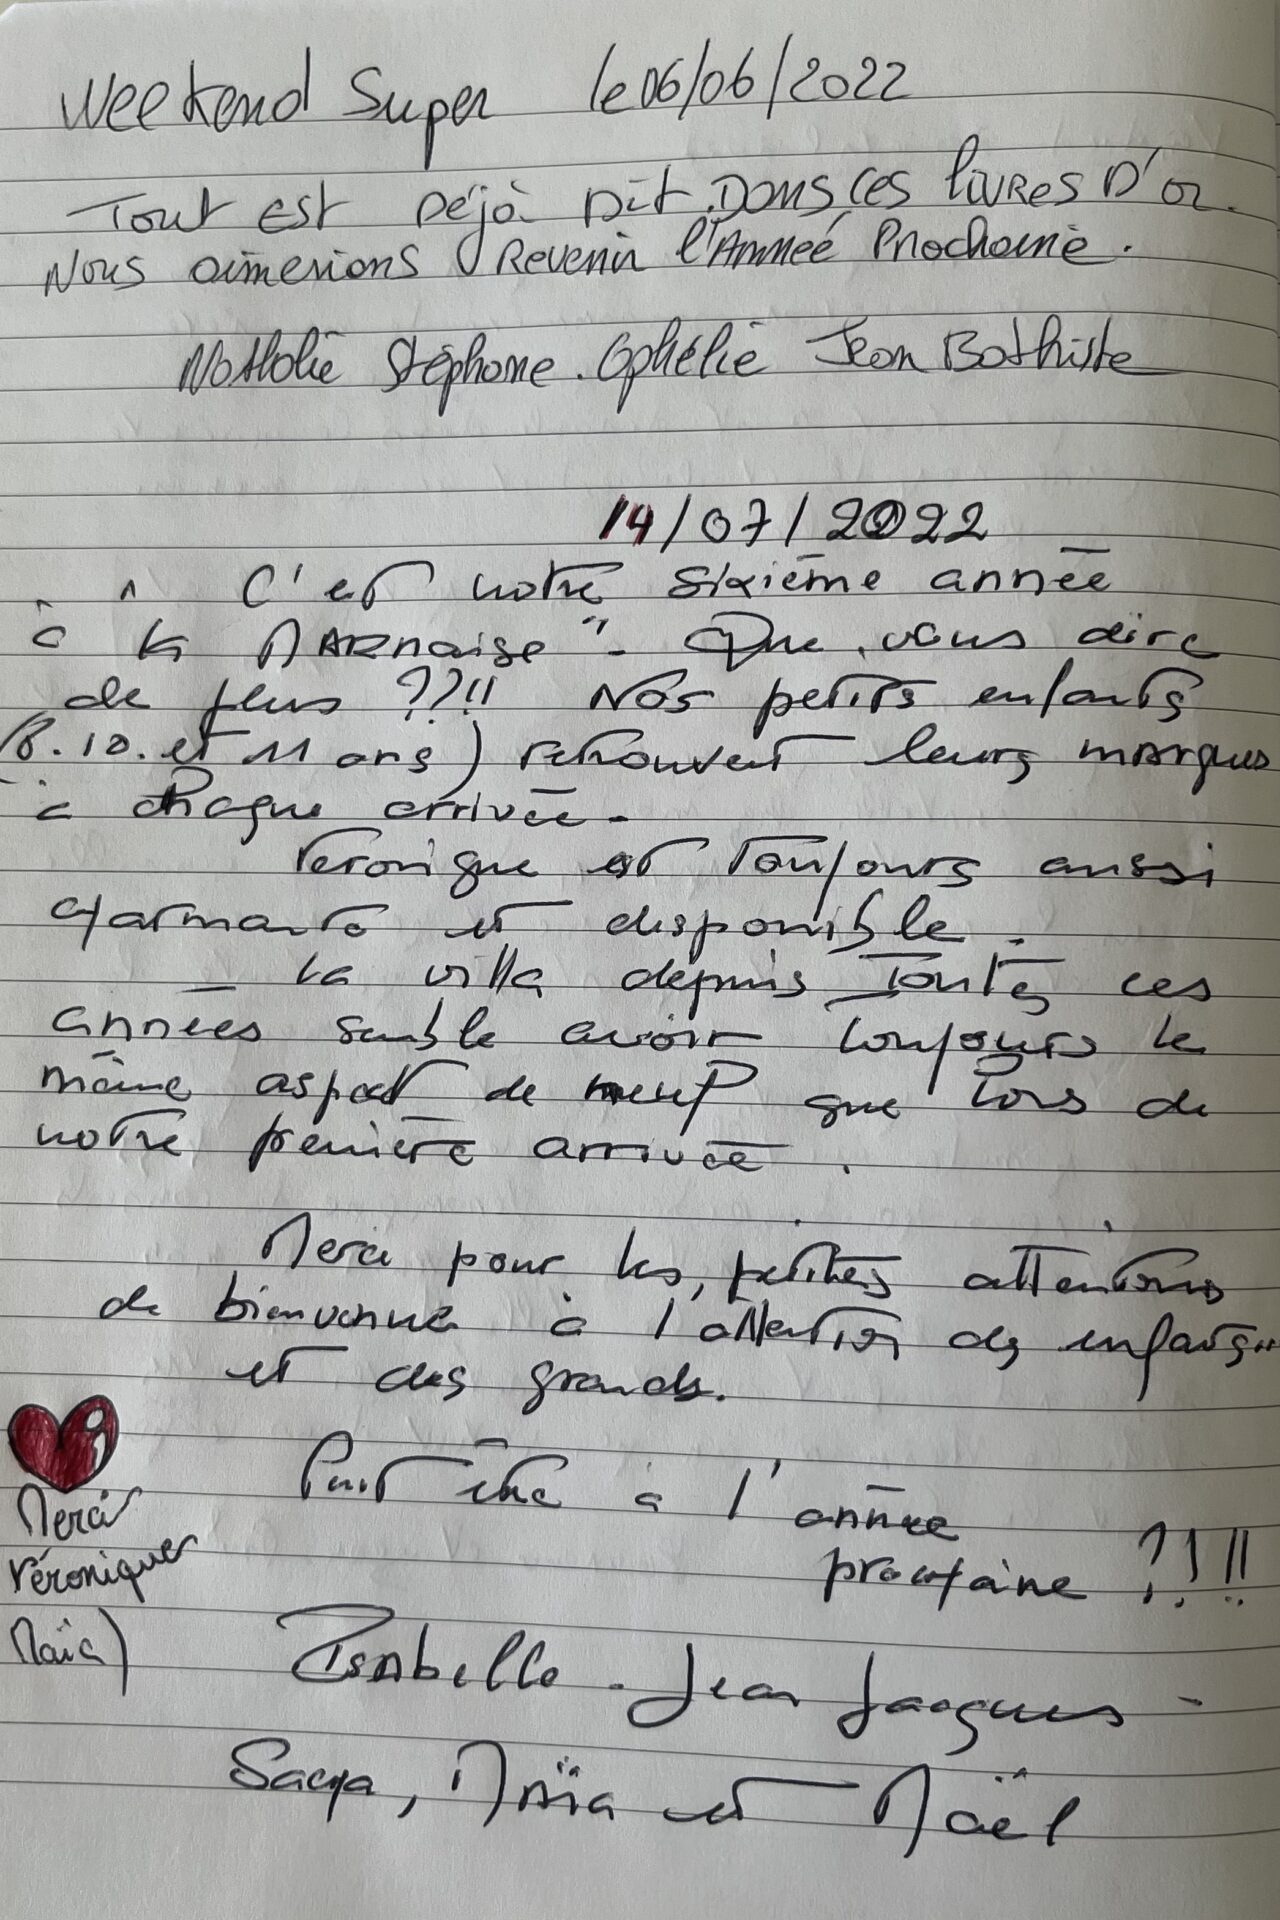 Weekend Super le 06/06/2022
Tout est Déjà Dit Dans ces livres D'or.
Nous aimerions Revenir l'Année Prochaine.
Nathalie Stéphane. Ophélie Jean Bathiste
14/07/2022
C'est notre sixième année
à "la MARnaise". Que vous dire
de plus ??!! Nos petits enfants
(8.10. et 11 ans) retrouvent leurs marques
à chaque arrivée.
Veronique est toujours aussi
charmante et disponible.
La villa depuis toutes ces
années semble avoir toujours le
même aspect de neuf que lors de
notre première arrivée.
Merci pour les petites attentions
de bienvenue à l'attention des enfants..
et des grands.
Peut être à l'année
prochaine ?!!!
Merci
Véronique
Maïa)
Isabelle - Jean Jacques -
Sacya, Maïa et Maël